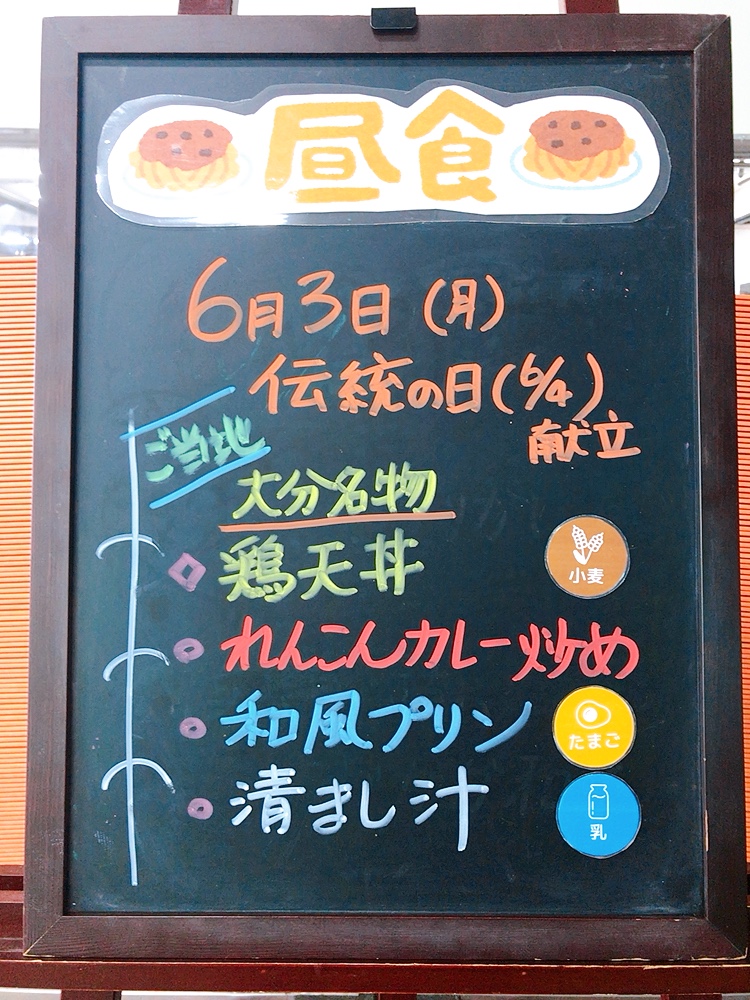 昼食
6月3日(月)
伝統の日(6/4)
献立
ご当地
大分名物
鶏天丼
小麦
れんこんカレー炒め
和風プリン
たまご
清まし汁
乳